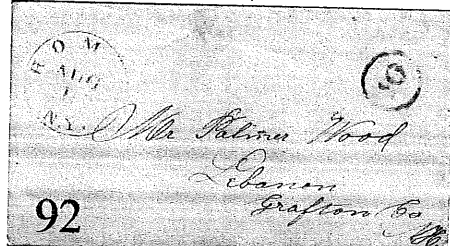 ROM
AUG
1
N.Y.
Mr Palmer Wood
Lebanon
Grafton Co
NH
92